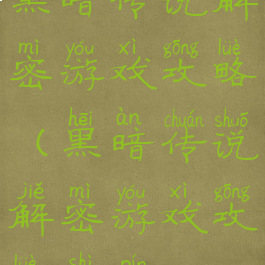 黑暗传说解
mì yóu xì gōng lüè
密游戏攻略
hēi àn chuán shuō
（黑暗传说
jiě mì yóu xì gōng
解密游戏攻